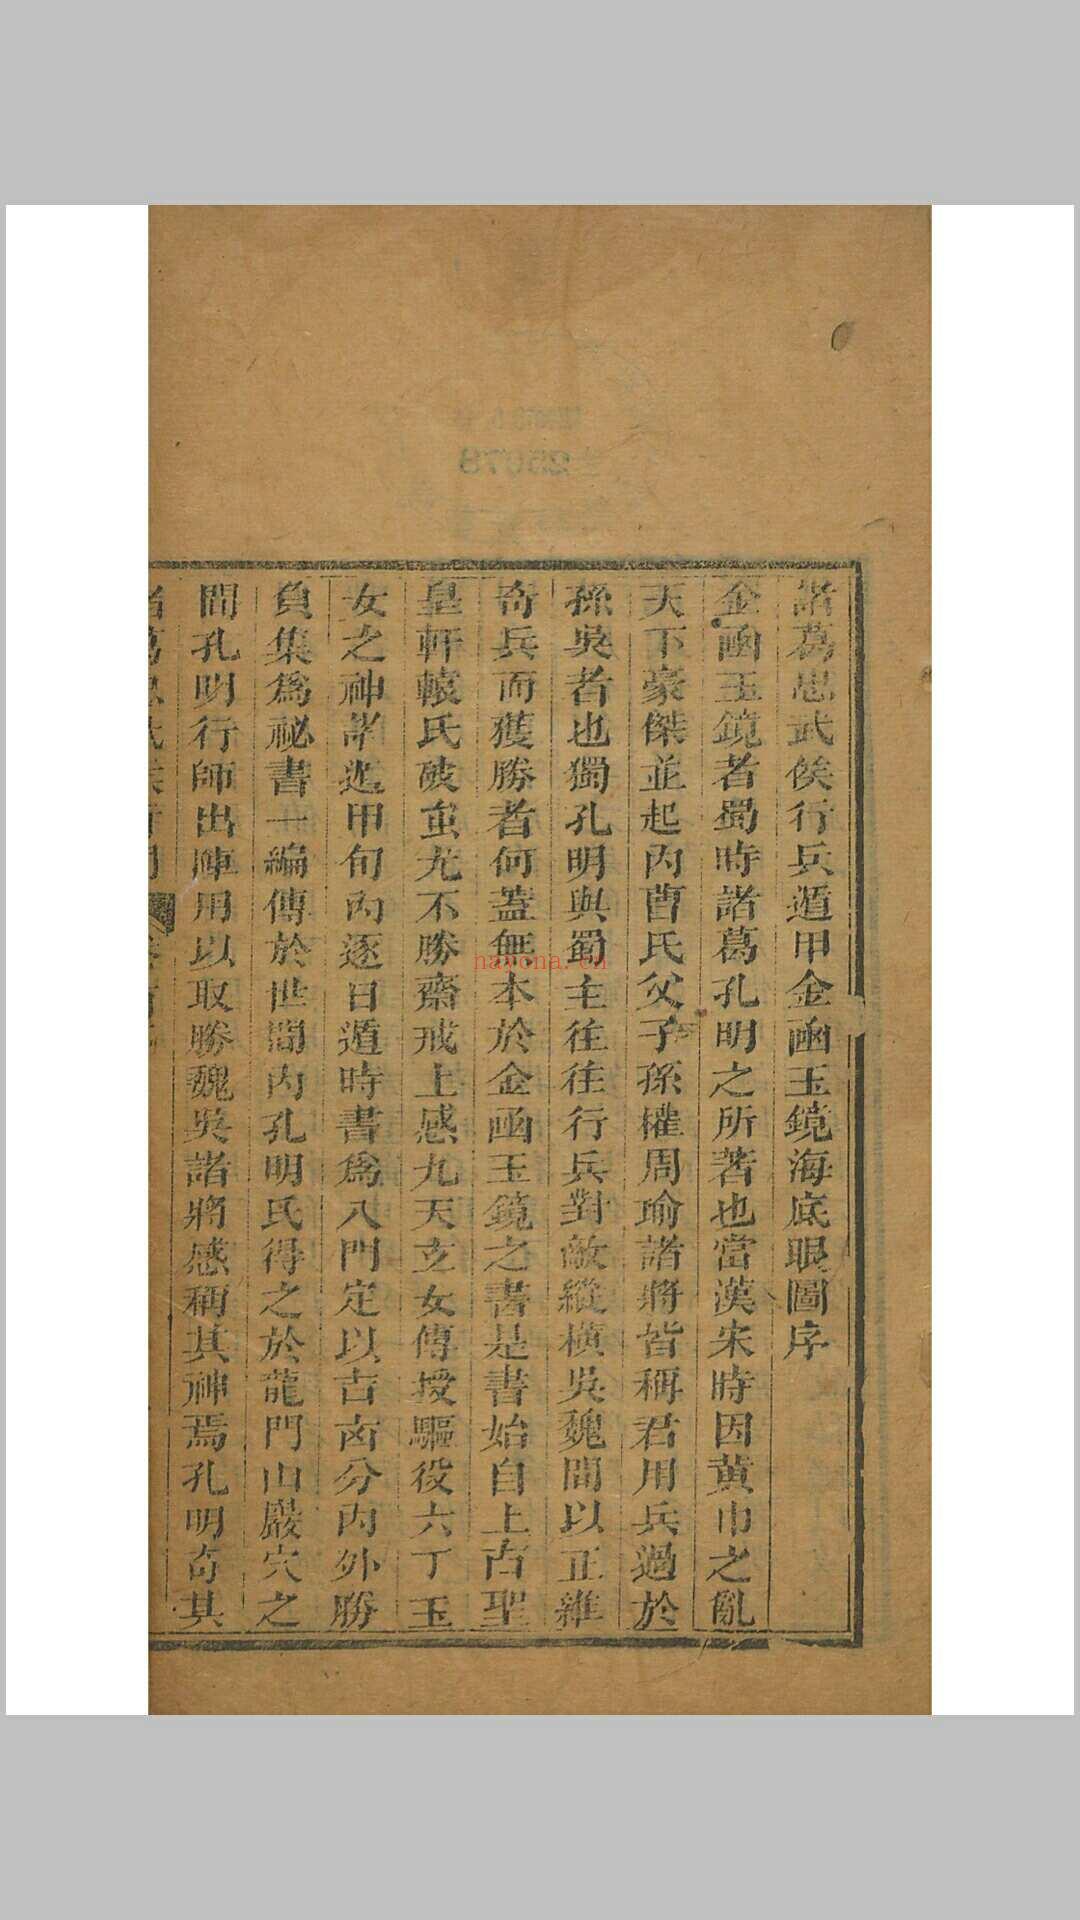 諸葛忠武侯行兵遁甲金函玉鏡海底眼圖序
金函玉鏡者蜀時諸葛孔明之所著也當漢宋時因黄巾之亂
天下豪傑並起内曹氏父子孫權周瑜諸將皆稱君用兵過於
孫吳者也獨孔明與蜀主往往行兵對敵縱横吳魏間以正雜
奇兵而獲勝者何蓋無本於金函玉鏡之書是書始自上古聖
皇軒轅氏破蚩尤不勝齋戒上感九天玄女傳授驅役六丁玉
女之神諸遁甲旬内逐日遁時書爲八門定以吉凶分内外勝
負集爲祕書一編傳於世間内孔明氏得之於龍門山巖穴之
間孔明行師出陣用以取勝魏吳諸將感稱其神焉孔明奇其
25078
nayona.cn